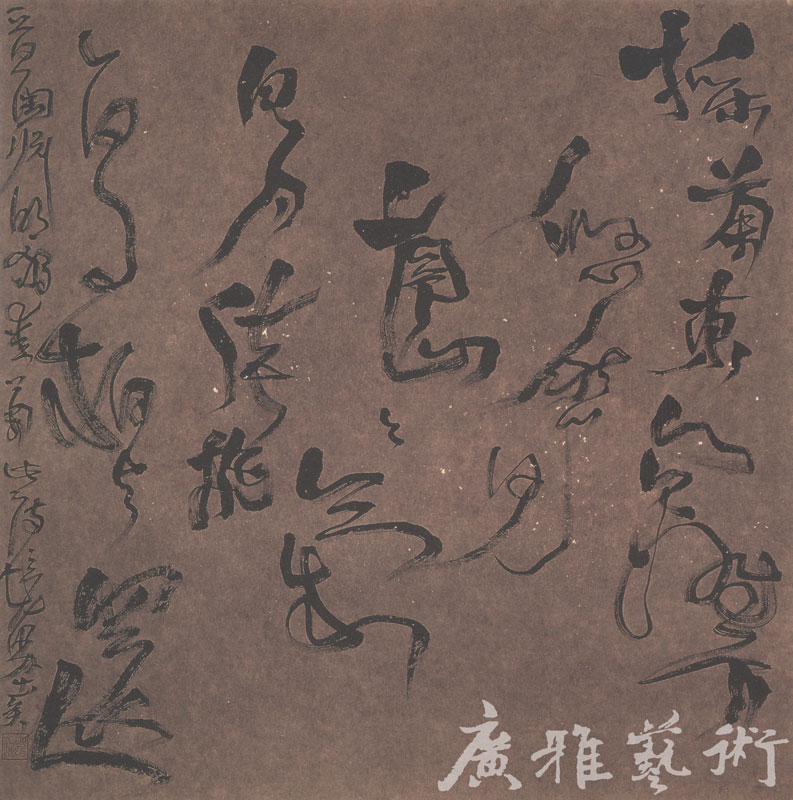 採菊東籬下
悠然見
南山々氣
日夕佳飛
鳥相與還
晉陶淵明獨愛菊此詩
廣雅藝術